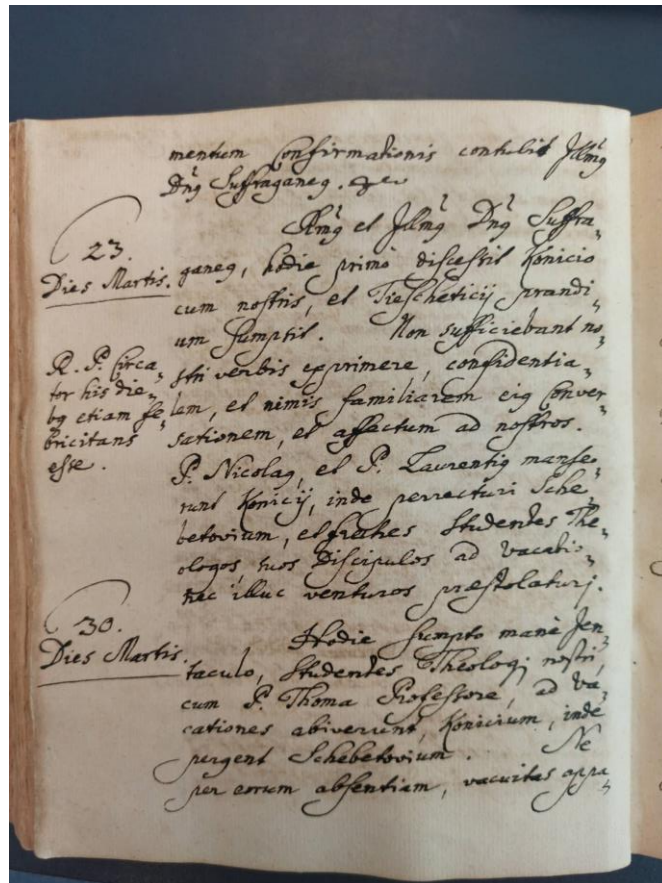 mentum Confirmationis contulit Jllmꝰ
Dnꝰ Suffraganeꝰ. &c
Rmꝰ et Jllmꝰ Dnꝰ Suffra-
23.
Dies Martis.
ganeꝰ, hodie primò discessit Konicio
cum nostris, et Tieschetickÿ prandi-
um sumpsit. Non sufficiebant no-
stri verbis exprimere, confidentia-
lem, et nimis familiarem eiꝰ Conver
sationem, et affectum ad nostros.
R. P. Circa-
tor his die-
bꝰ etiam fe-
bricitans
esse.
P. Nicolaꝰ, et P. Laurentiꝰ manse-
runt Konicÿ, inde perrecturi Sche-
betovium, et fratres Studentes The-
ologos, suos Discipulos ad vacatio-
nes illuc venturos præstolaturj.
30.
Dies Martis.
Hodie sumpto manè Jen-
taculo, Studentes Theologj nostri,
cum P. Thoma Professore, ad va-
cationes abiverunt, Konicium, inde
pergent Schebetovium. Ne
per eorum absentiam, vacuitas appa-